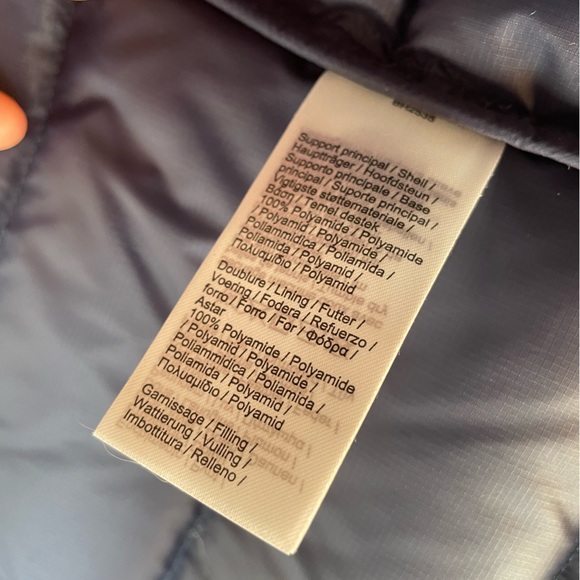 Support principal / Shell /
Hauptträger / Hoofdsteun /
Supporto principale / Base
principal / Suporte principal /
Vigtigste støttemateriale /
Βάση / Temel destek
100% Polyamide / Polyamide
/ Polyamid / Polyamide /
Poliammidica / Poliamida /
Poliamida / Polyamid /
Πολυαμίδιο / Polyamid
Doublure / Lining / Futter /
Voering / Fodera / Refuerzo /
forro / Forro / For / Φόδρα /
Astar
100% Polyamide / Polyamide
/ Polyamid / Polyamide /
Poliammidica / Poliamida /
Poliamida / Polyamid /
Πολυαμίδιο / Polyamid
Garnissage / Filling /
Wattierung / Vulling /
Imbottitura / Relleno /